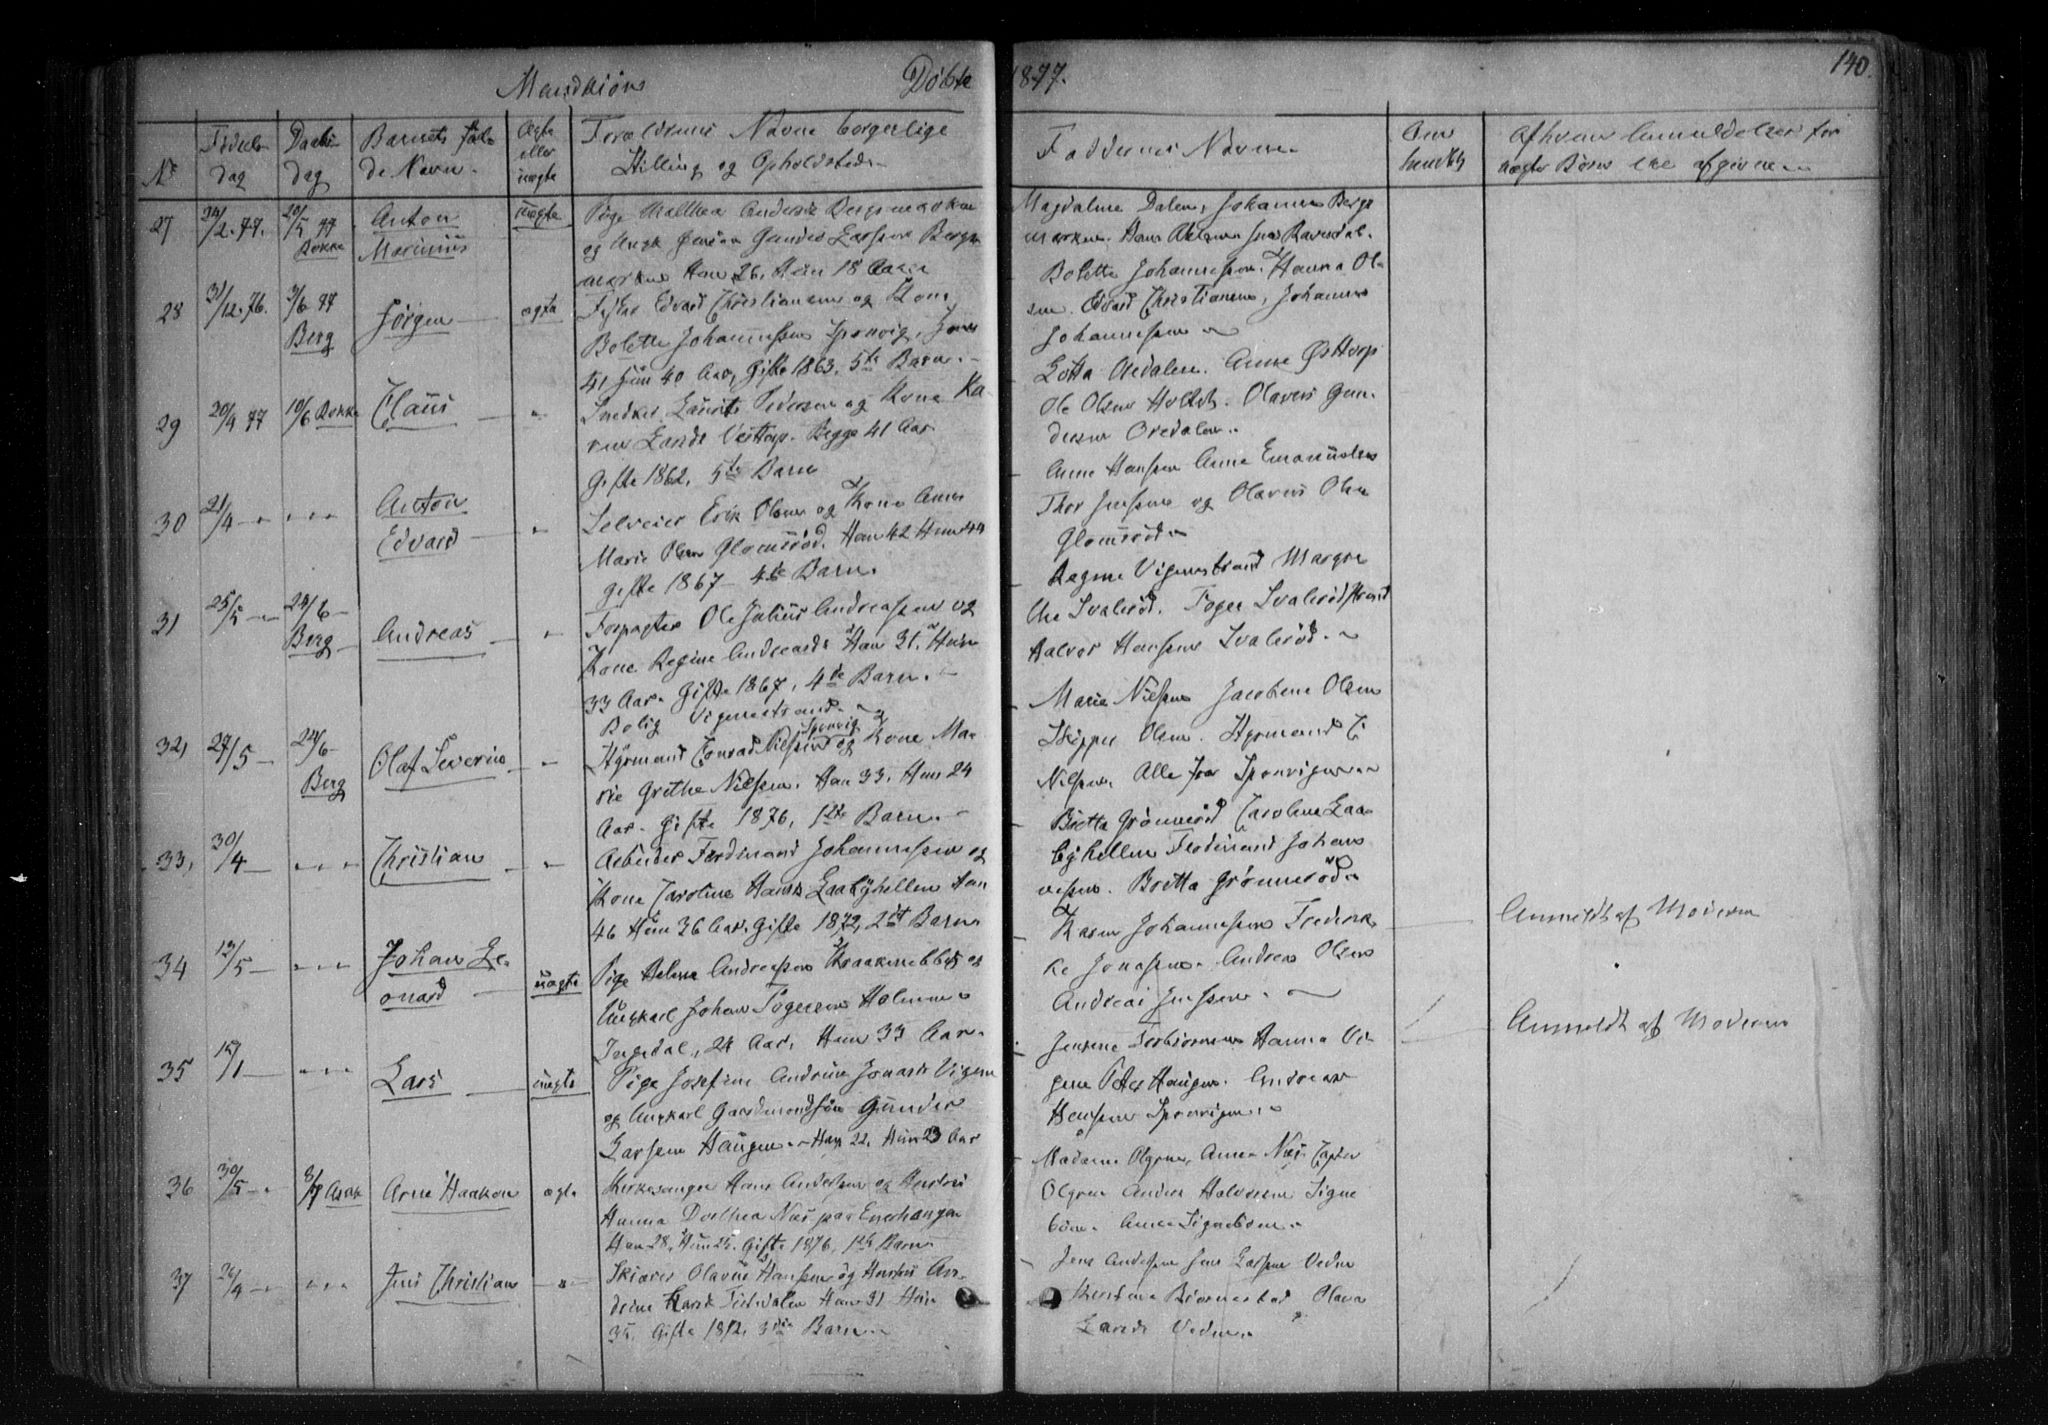 Mandkiøn Døbte 1877. 140.
No Fødsels dag Daabs dag Barnets fulde Navn. Ægte eller uægte Forældrenes Navne borgerlige Stilling og Opholdssted Faddernes Navne An
uægte Børn ere afgivne
27 24/2. 77. 20/5 77 Rokke Anton Marinius uægte
Pige Malthea Anders
og Ungk Gunder Larssen Berg
Han 26, Hun 18 Aar
Magdalene Dalen, Johannes Berg
28 31/12. 76. 3/6 77 Berg Jørgen ægte
Fisker Edvard Christiansen og Kone
Bolette Johannessen Sponvig, Han
41 Hun 40 Aar, Gifte 1863, 5te Barn.
Bolette Johannessen. Hanna Ol-
sen. Edvard Christiansen, Johannes
Johannessen
29 20/4 77 10/6 Rokke Claus "
Snedker Laurits Pedersen og Kone Ka-
ren Larsd Vestorp. Begge 41 Aar
Gifte 1862, 5te Barn
Lotta Oredalen. Anne Østtorp
Ole Olsen Holtet. Olaves Gun-
dersen Oredalen.
30 21/4 " " " Anton Edvard "
Selveier Erik Olsen og Kone Anne
Marie Olsen Glomsrød. Han 42 Hun 44
gifte 1867 - 4de Barn.
Anne Hanssen Anne Emanuelsen
Thor Jenssen og Olaves Olsen
Glomsrød
31 25/5 24/6 Berg Andreas "
Forpagter Ole Julius Andreassen og
Kone Regine Andreasd. Han 31. Hun
33 Aar. Gifte 1867, 4de Barn.
Bolig Vigenestrand
Regine Vigenestrand Margre
the Svalerød. Torger Svalerødstrand
Halvor Hanssen Svalerød.
32, 27/5 24/6 Berg Olaf Severin "
Styrmand Conrad Nilssen Sponvig og Kone Ma-
rie Grethe Nilssen. Han 33, Hun 24
Aar. Gifte 1876, 1ste Barn.
Marie Nilssen Jacobine Olsen
Skipper Olsen. Styrmand C
Nilssen. Alle fra Sponvigen
33, 30/4 " " " Christian "
Arbeider Ferdinand Johannessen og
Kone Caroline Hansd Laabyhellen Han
46 Hun 36 Aar. Gifte 1872, 2det Barn
Britta Grønnerød Caroline Laa-
byhellen Ferdinand Johan-
nessen. Britta Grønnerød
34 12/5 " " " Johan Leonard uægte
Pige Helene Andreassen og
Ungkarl Johan Torgersen Holmen
Ingedal, 24 Aar, Hun 33 Aar.
Karen Johannessen Frederik-
ke Jonassen. Andreas Olsen
Andreas Jenssen.
Anmeldt af Moderen
35 15/1 " " " Lars uægte
Pige Josefine Andrine Jonasd Vigen
og Ungkarl Gaardmandssøn Gunder
Larssen Haugen. Han 22, Hun 23 Aar
Hanna Vi-
gene Peter Haugen. Andreas
Hanssen Sponvigen.
Anmeldt af Moderen
36 30/5 8/7 Asak Arne Haakon ægte
Kirkesanger Hans Anderssen og Hustru
Hanna Dorthea Næs paa Enerhaugen
Han 28, Hun 25. Gifte 1876, 1ste Barn
Madame Olgren, Anne Næs
Olgren Anders Halvorsen Signe
bøen. Anne Signebøen.
37 24/4 " " " Jens Christian "
Olavus Hanssen og Hustru An-
drine Larsd Tistedalen Han 31 Hun
35. Gifte 1872, 3die Barn
Jens Anderssen Jens Larssen Veden
Kirstine Bjørnestad Olava
Larsd Veden.